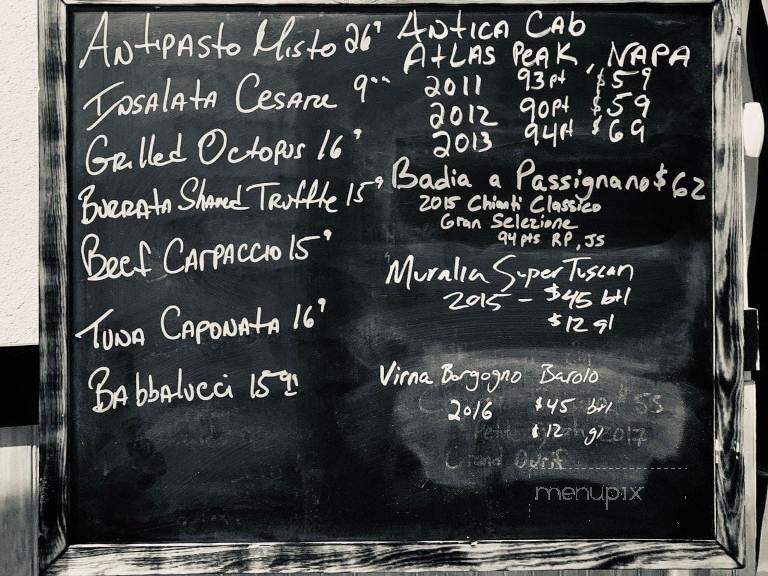 Antipasto Misto 26⁹
Insalata Cesare 9⁰⁰
Grilled Octopus 16⁹
Burrata Shaved Truffle 15⁹
Beef Carpaccio 15⁹
Tuna Caponata 16⁹
Babbalucci 15⁹⁵
Antica Cab
Atlas Peak, Napa
2011 93pt $59
2012 90pt $59
2013 94pt $69
Badia a Passignano $62
2015 Chianti Classico
Gran Selezione
94pts RP, JS
Muralia Super Tuscan
2015 - $45 btl
$12 gl
Virna Borgogno Barolo
2016 $45 btl
$12 gl
menupix